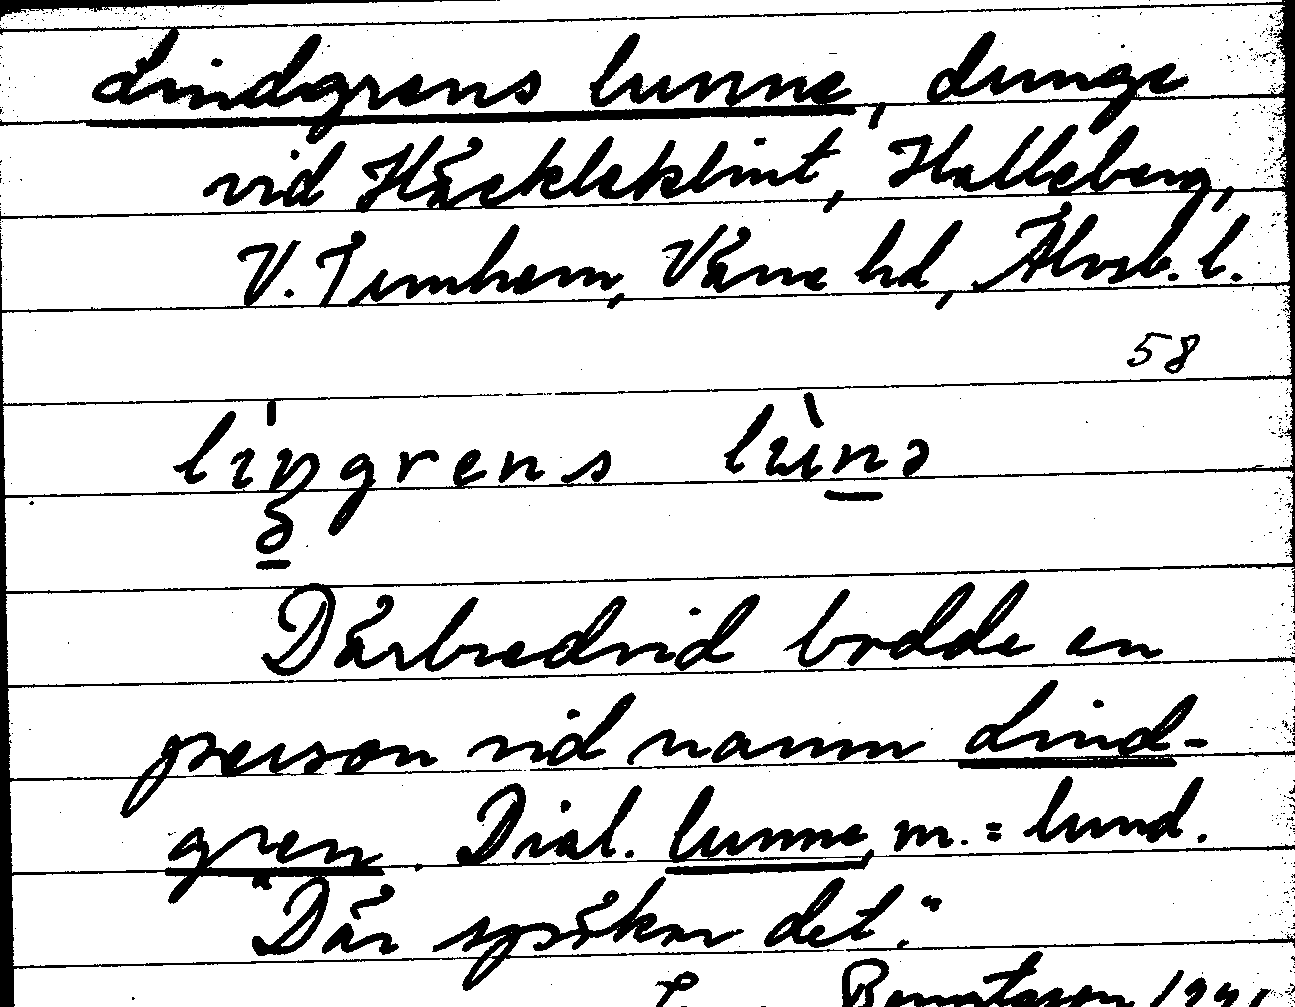 Lindgrens lunne, dunge
vid Häckleklint, Halleberg,
V. Tunhem, Väne hd, Älvsb. l.
58
Därbredvid bodde en
person vid namn Lind-
gren. Dial. lunne, m. = lund.
"Där spökar det."
Bengtsson